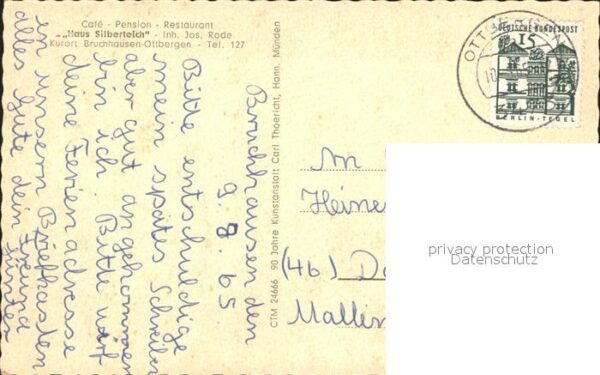 Café - Pension - Restaurant
„Haus Silberteich" - Inh. Jos. Rode
Kurort Bruchhausen-Ottbergen - Tel. 127
Bruchhausen den
9. 8. 65
Bitte entschuldige
mein spätes Schreiben
aber gut angekommen
bin ich. Bitte wirf
deine Ferienadresse
in unsern Briefkasten
alles Gute dein Freund
CTM 24666 90 Jahre Kunstanstalt Carl Thoericht, Hann. Münden
OTTBERGEN
DEUTSCHE BUNDESPOST
15
BERLIN-TEGEL
An
Heine
(46) Do
Mallin
privacy protection
Datenschutz